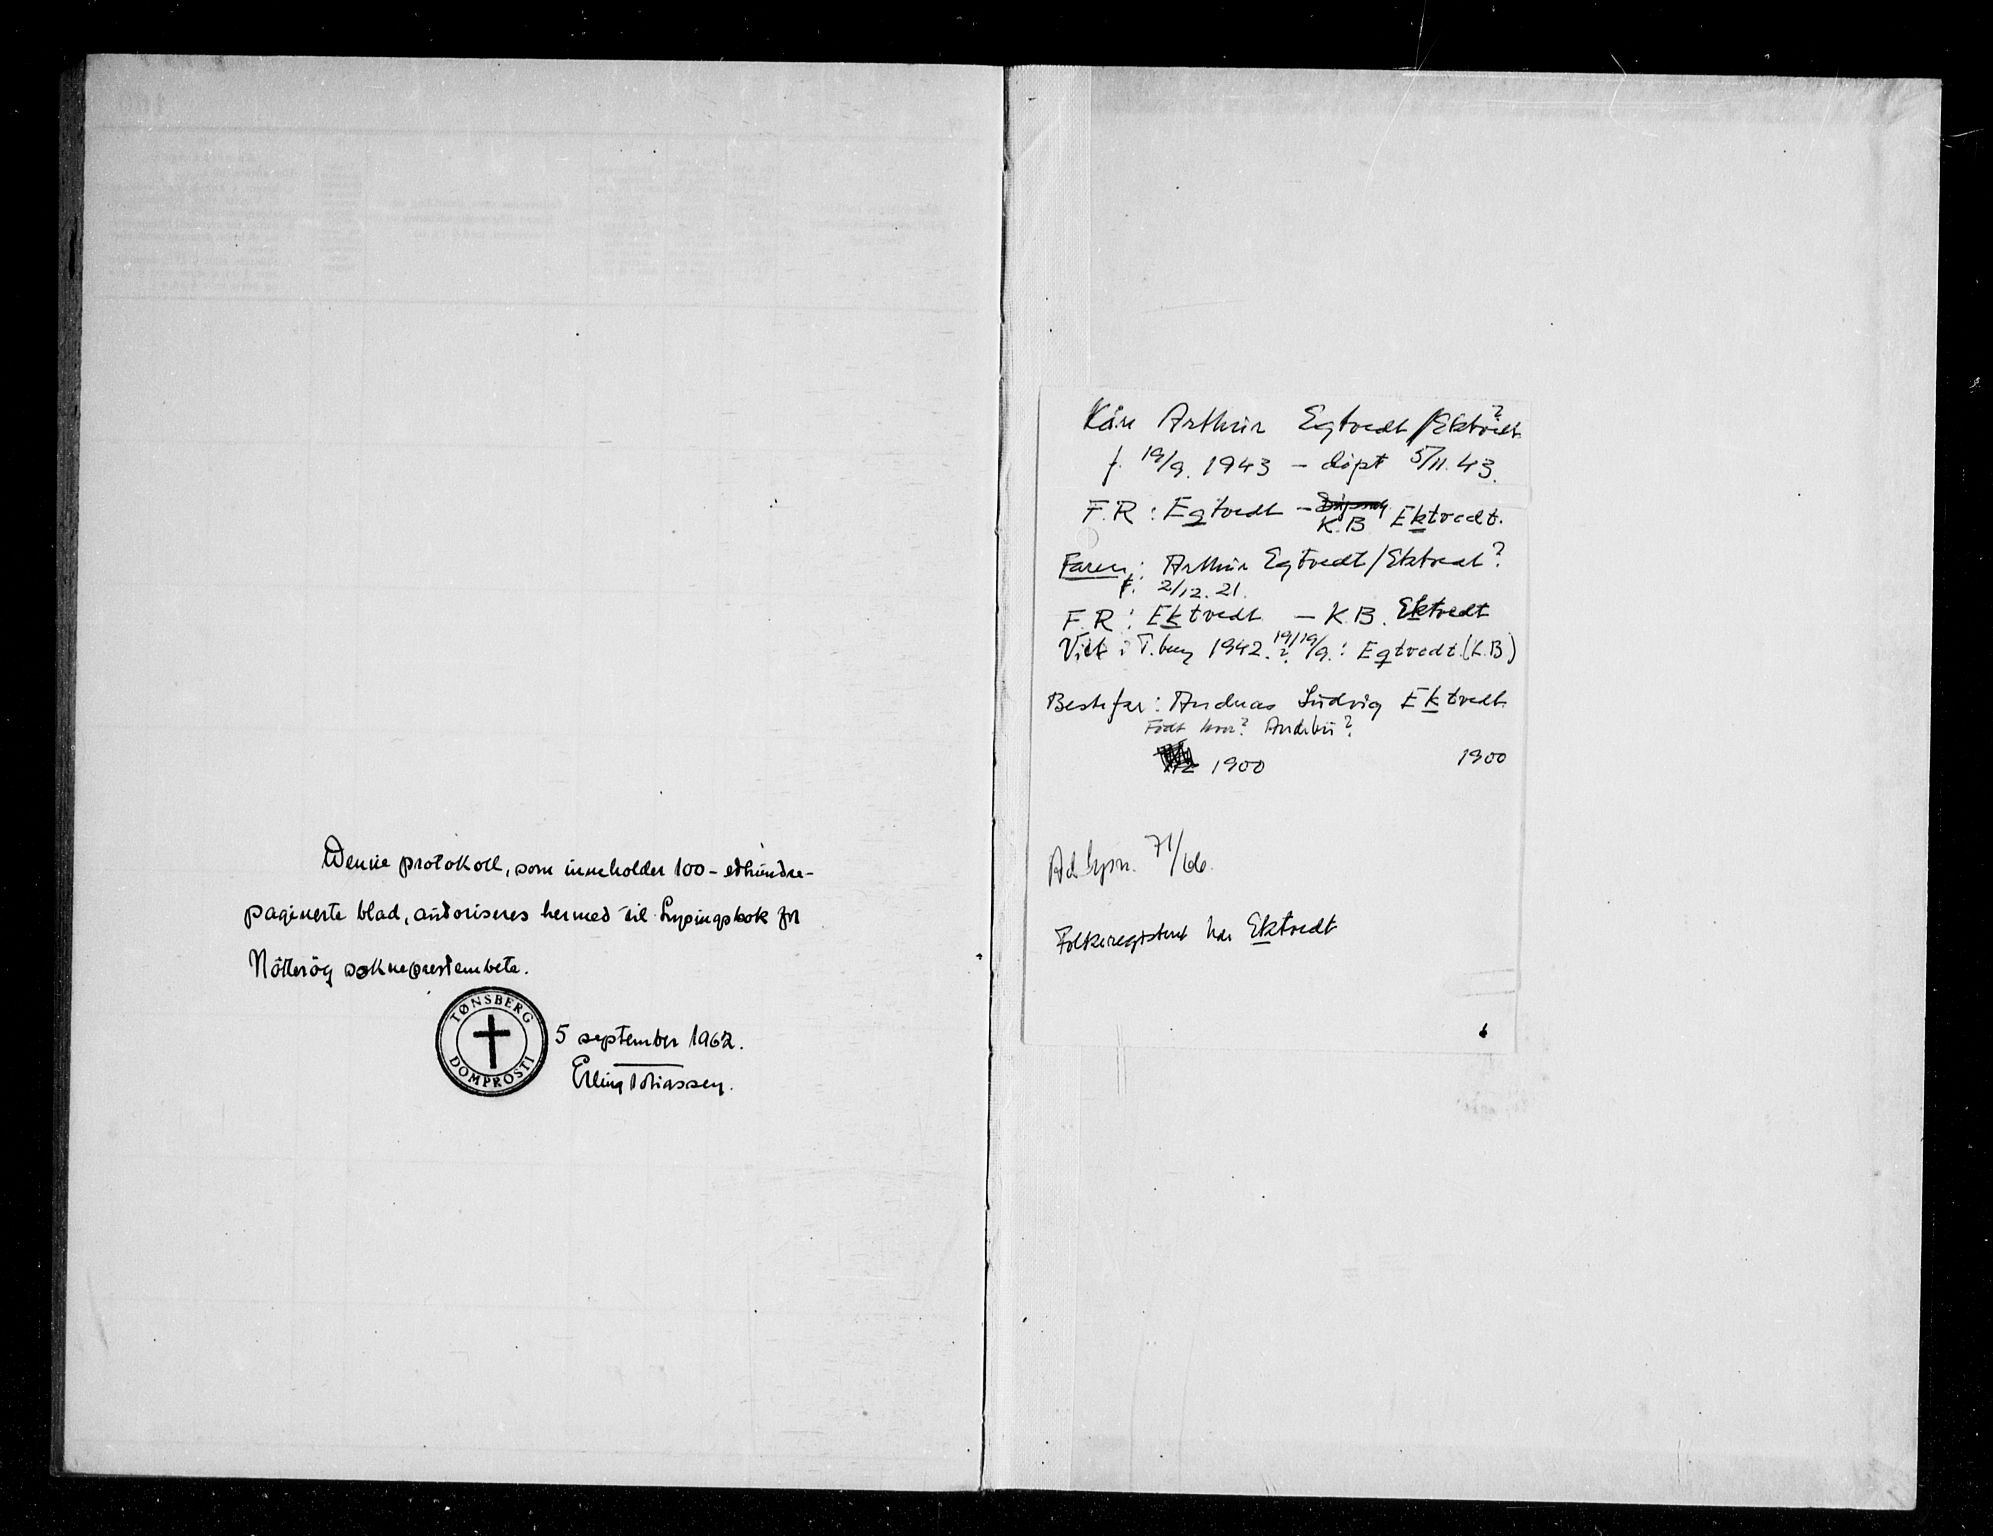 Denne protokoll, som inneholder 100 - etthundre-
paginerte blad, autoriseres hermed til Lysingsbok for
Nøtterøy sokneprestembete.
TØNSBERG DOMPROSTI
5 september 1962.
Erling Tobiassen.
Kåre Arthur Egtvedt/Ektvedt?
f. 19/9. 1943 - døpt 5/11. 43.
F.R: Egtvedt - K.B Ektvedt.
Faren: Arthur Egtvedt/Ektvedt?
f. 2/12. 21.
F.R: Ektvedt - K.B. Ektvedt
Viet i T.berg 1942. 19/9.: Egtvedt (K.B)
Bestefar: Andreas Ludvig Ektvedt.
Født hvor? Andebu?
1900 1900
Ad lysn. 71/66.
Folkeregisteret har Ektvedt